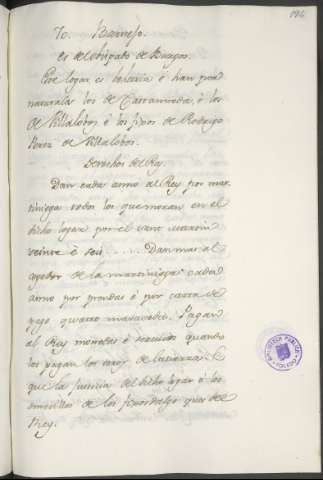 196
To. Barruelo.
es del obispado de Burgos.
Este logar es behetria é han por
naturales los de Carrancueda, é los
de Villalobos, é los fijos de Rodrigo
Perez de Villalobos.
Derechos del Rey.
Dan cada anno al Rey por mar
tiniega todos los que moran en el
dicho logar por el sant Martin
veinte é seis ..... Dan mas al
cogedor de la martiniega cada
anno por prendas é por carta de
pago quatro maravedis. Pagan
al Rey monedas é servicios quando
los pagan los otros de la tierra. É
que la justicia del dicho logar é los
omecillos de los fijosdalgo que es del
Rey.